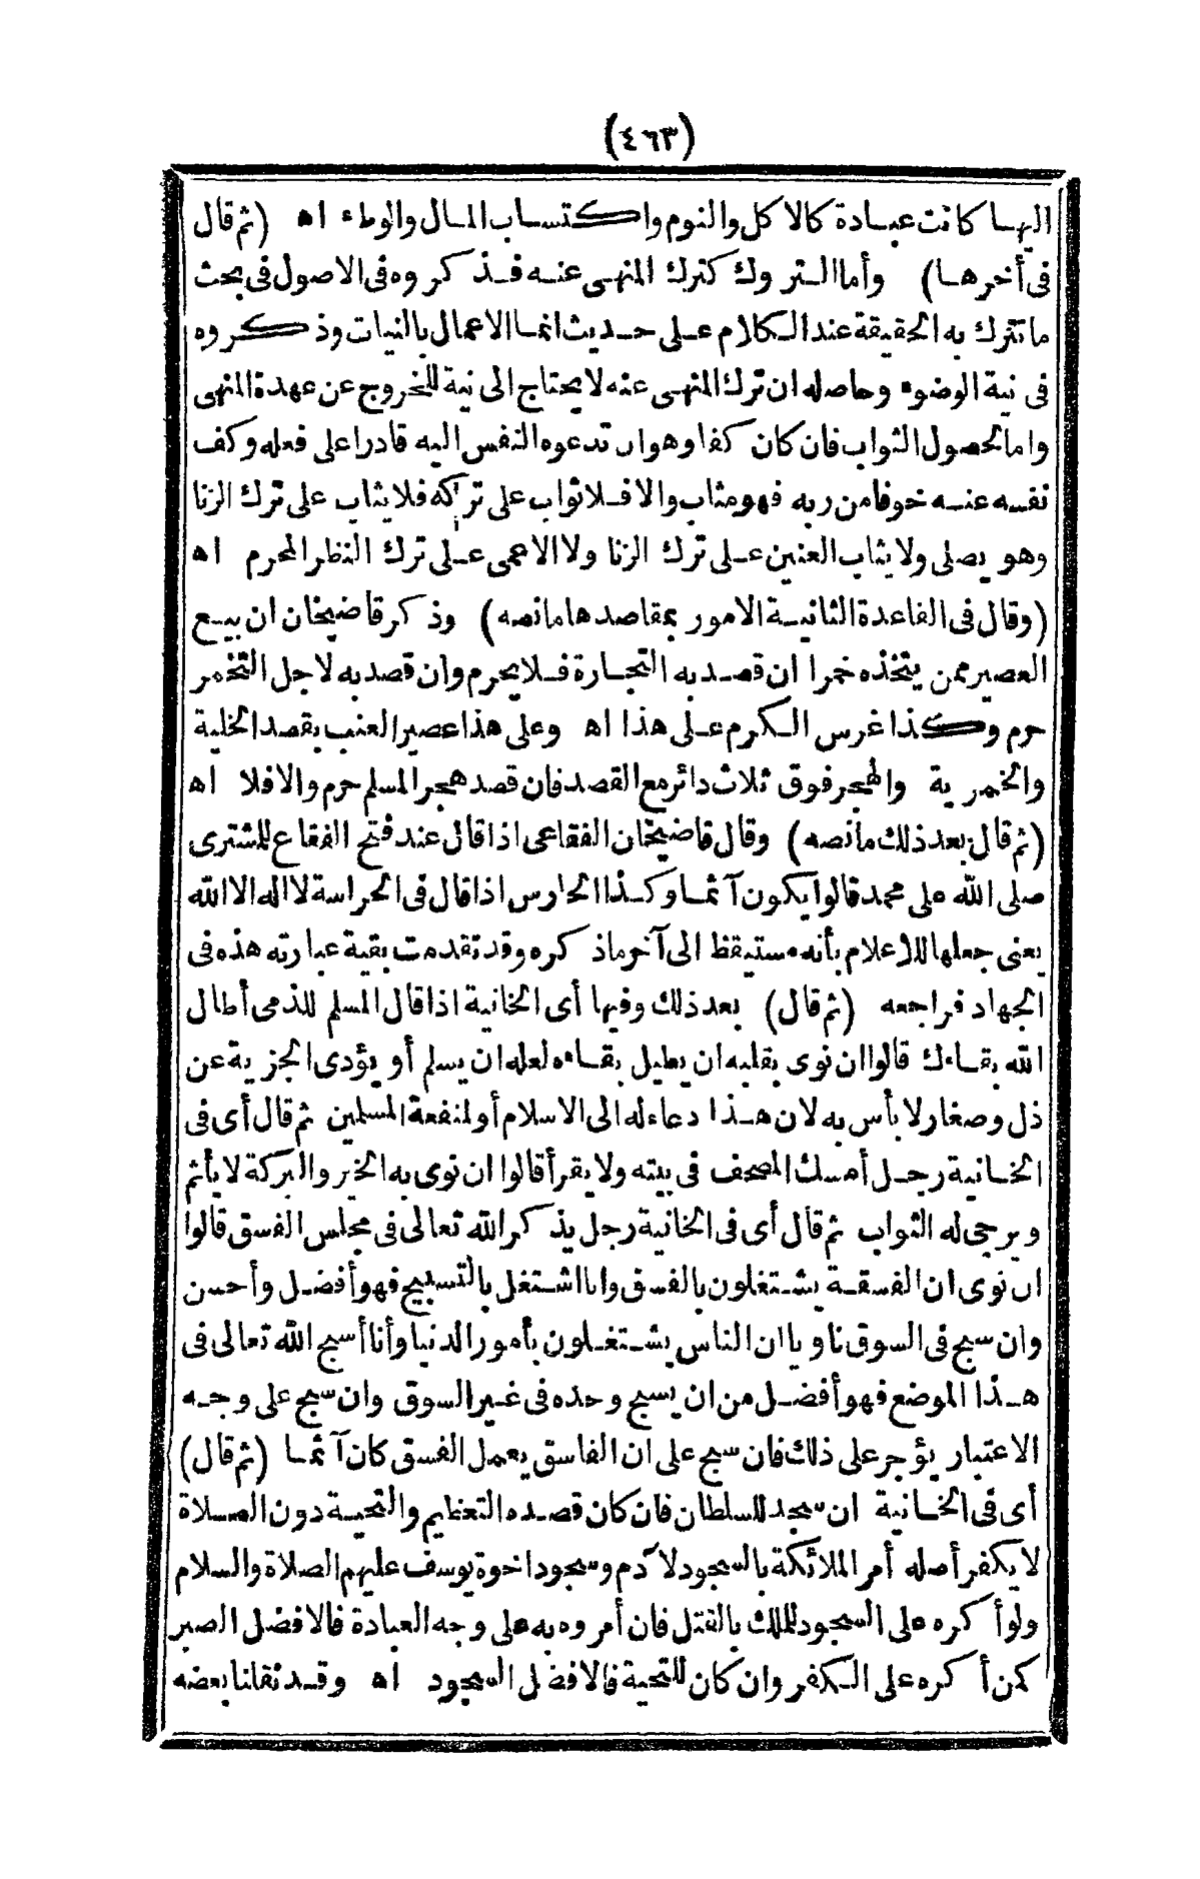 (٤٦٣)
اليها كانت عبادة كالاكل والنوم واكتساب المال والوطء اه (ثم قال
فى أخرها) وأما التروك كترك المنهى عنه فذكروه فى الاصول فى بحث
ما تترك به الحقيقة عند الكلام على حديث انما الاعمال بالنيات وذكروه
فى نية الوضوء وحاصله ان ترك المنهى عنه لا يحتاج الى نية للخروج عن عهدة المنهى
واما لحصول الثواب فان كان كفا وهو ان تدعوه النفس اليه قادرا على فعله وكف
نفسه عنه خوفا من ربه فهو مثاب والا فلا ثواب على تركه فلا يثاب على ترك الزنا
وهو يصلى ولا يثاب العنين على ترك الزنا ولا الاعمى على ترك النظر المحرم اه
(وقال فى القاعدة الثانية الامور بمقاصدها مانصه) وذكر قاضيخان ان بيع
العصير ممن يتخذه خمرا ان قصد به التجارة فلا يحرم وان قصد به لاجل التخمر
حرم وكذا غرس الكرم على هذا اه وعلى هذا عصير العنب بقصد الخلية
والخمرية والهجر فوق ثلاث دائر مع القصد فان قصد هجر المسلم حرم والا فلا اه
(ثم قال بعد ذلك مانصه) وقال قاضيخان الفقاعى اذا قال عند فتح الفقاع للمشترى
صلى الله على محمد قالوا يكون آثما وكذا الحارس اذا قال فى الحراسة لا اله الا الله
يعنى جعلها للاعلام بأنه مستيقظ الى آخر ماذكره وقد تقدمت بقية عبارته هذه فى
الجهاد فراجعه (ثم قال) بعد ذلك وفيها أى الخانية اذا قال المسلم للذمى أطال
الله بقاءك قالوا ان نوى بقلبه ان يطيل بقاءه لعله ان يسلم أو يؤدى الجزية عن
ذل وصغار لا بأس به لان هذا دعاء له الى الاسلام أو لمنفعة المسلمين ثم قال أى فى
الخانية رجل أمسك المصحف فى بيته ولا يقرأ قالوا ان نوى به الخير والبركة لا يأثم
ويرجى له الثواب ثم قال أى فى الخانية رجل يذكر الله تعالى فى مجلس الفسق قالوا
ان نوى ان الفسقة يشتغلون بالفسق وانا اشتغل بالتسبيح فهو أفضل وأحسن
وان سبح فى السوق ناويا ان الناس يشتغلون بأمور الدنيا وأنا أسبح الله تعالى فى
هذا الموضع فهو أفضل من ان يسبح وحده فى غير السوق وان سبح على وجه
الاعتبار يؤجر على ذلك فان سبح على ان الفاسق يعمل الفسق كان آثما (ثم قال)
أى فى الخانية ان سجد للسلطان فان كان قصده التعظيم والتحية دون الصلاة
لا يكفر أصله أمر الملائكة بالسجود لآدم وسجود اخوة يوسف عليهم الصلاة والسلام
ولو أكره على السجود للملك بالقتل فان أمروه به على وجه العبادة فالافضل الصبر
كمن أكره على الكفر وان كان للتحية فالافضل السجود اه وقد نقلنا بعضه